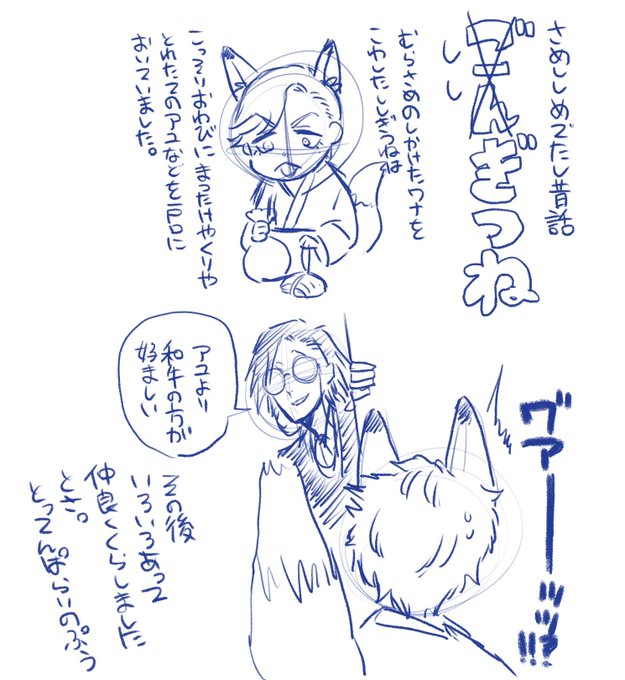 さめししめでたし昔話
ごんぎつね
しし
むらさめのしかけたワナを
こわしたししぎつねは
こっそりおわびにまったけやくりや
とれたてのアユなどを戸口に
おいていました。
ヴァーッッ!!?
アユより
和牛の方が
好ましい
その後
いろいろあって
仲良くくらしました
とさ。
とってんぱらいのぷう